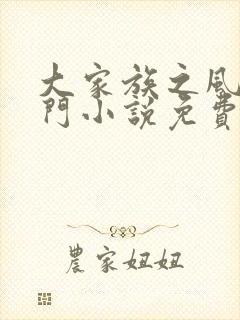 大家族之風
門小說免費
農家妞妞